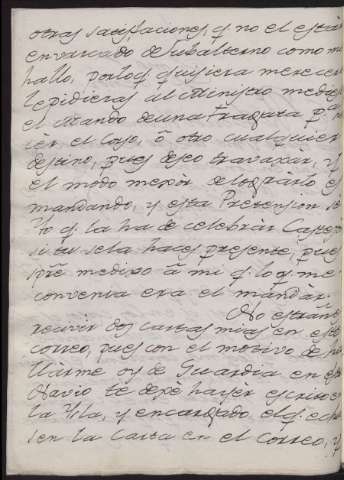 otras satisfaciones, y no el estar
envarcado de Subalterno como me
hallo, porloq. quisiera merecer
le pidieras al Ministro me dies
el Mando de una Fragata pa. h
ièr el Corso, ô otro cualquier
destino, pues deseo travajàr, y
el modo mejòr de logràrlo es
mandando, y esta Pretension se
Yo q. la ha de celebràr Castejo
si tu se la haces presente, pues
spre me dixo â mi q. lo q. me
convenia era el mandàr.
No estrañes
recivir dos cartas mias en este
correo, pues con el motivo de ha
llarme oy de Guardia en este
Navio te dexè hayèr escrito en
la Ysla, y encargado el q. echa
sen la Carta en el Correo, y